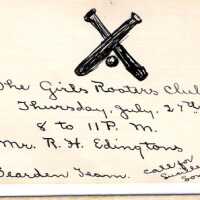 The Girls Rooters Club
Thursday, July, 27th
8 to 11 P. M.
Mr. R. H. Edingtons
Bearden Team.
call for